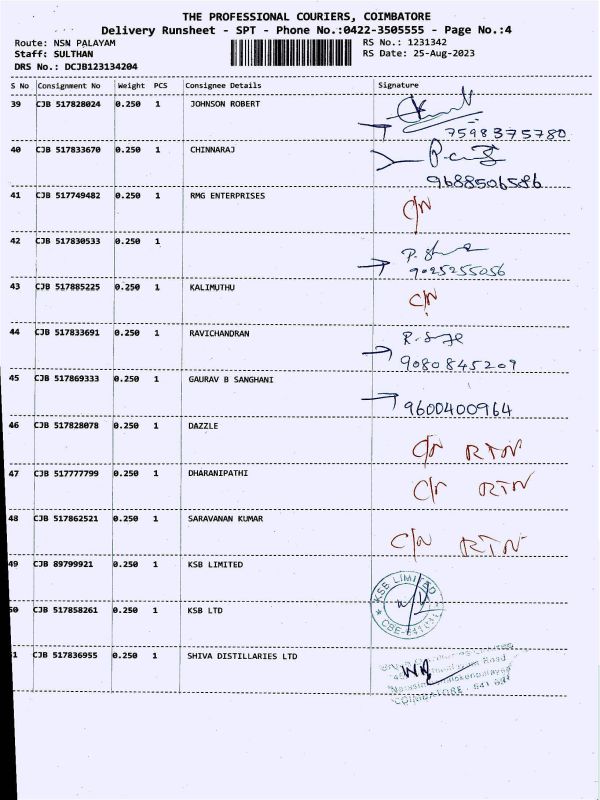 THE PROFESSIONAL COURIERS, COIMBATORE
Delivery Runsheet - SPT - Phone No.:0422-3505555 - Page No.:4
Route: NSN PALAYAM RS No.: 1231342
Staff: SULTHAN RS Date: 25-Aug-2023
DRS No.: DCJB123134204
S No Consignment No Weight PCS Consignee Details Signature
39 CJB 517828024 0.250 1 JOHNSON ROBERT
7598375780
40 CJB 517833670 0.250 1 CHINNARAJ
9688506586
41 CJB 517749482 0.250 1 RMG ENTERPRISES C/N
42 CJB 517830533 0.250 1
9025255056
43 CJB 517885225 0.250 1 KALIMUTHU C/N
44 CJB 517833691 0.250 1 RAVICHANDRAN
9080845209
45 CJB 517869333 0.250 1 GAURAV B SANGHANI
9600400964
46 CJB 517828078 0.250 1 DAZZLE C/N RTN
47 CJB 517777799 0.250 1 DHARANIPATHI C/N RTN
48 CJB 517862521 0.250 1 SARAVANAN KUMAR C/N RTN
49 CJB 89799921 0.250 1 KSB LIMITED
KSB LIMITED
50 CJB 517858261 0.250 1 KSB LTD
CBE-641031
51 CJB 517836955 0.250 1 SHIVA DISTILLARIES LTD
Road
COIMBATORE - 641